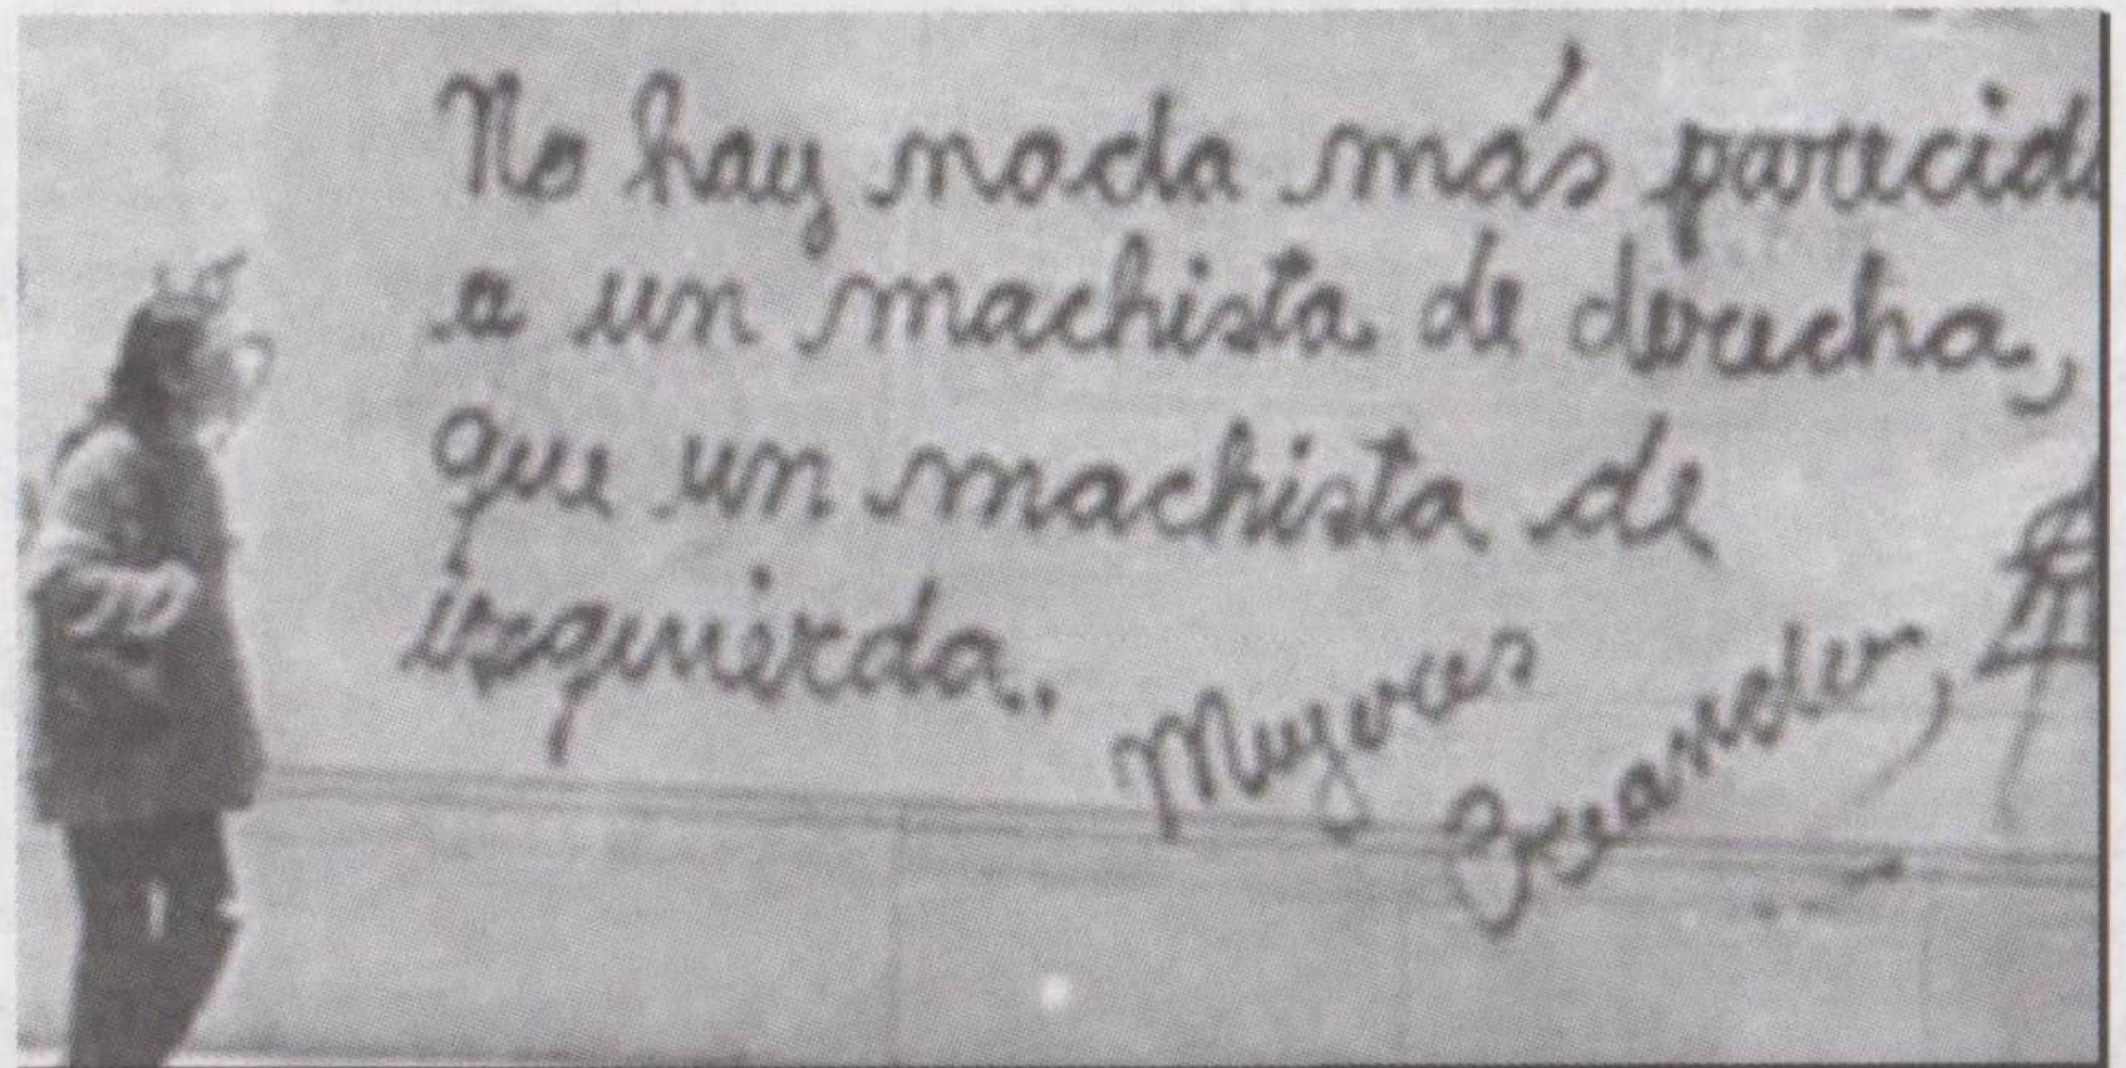 No hay nada más parecido
a un machista de derecha,
que un machista de
izquierda..
Mujeres
Creando,